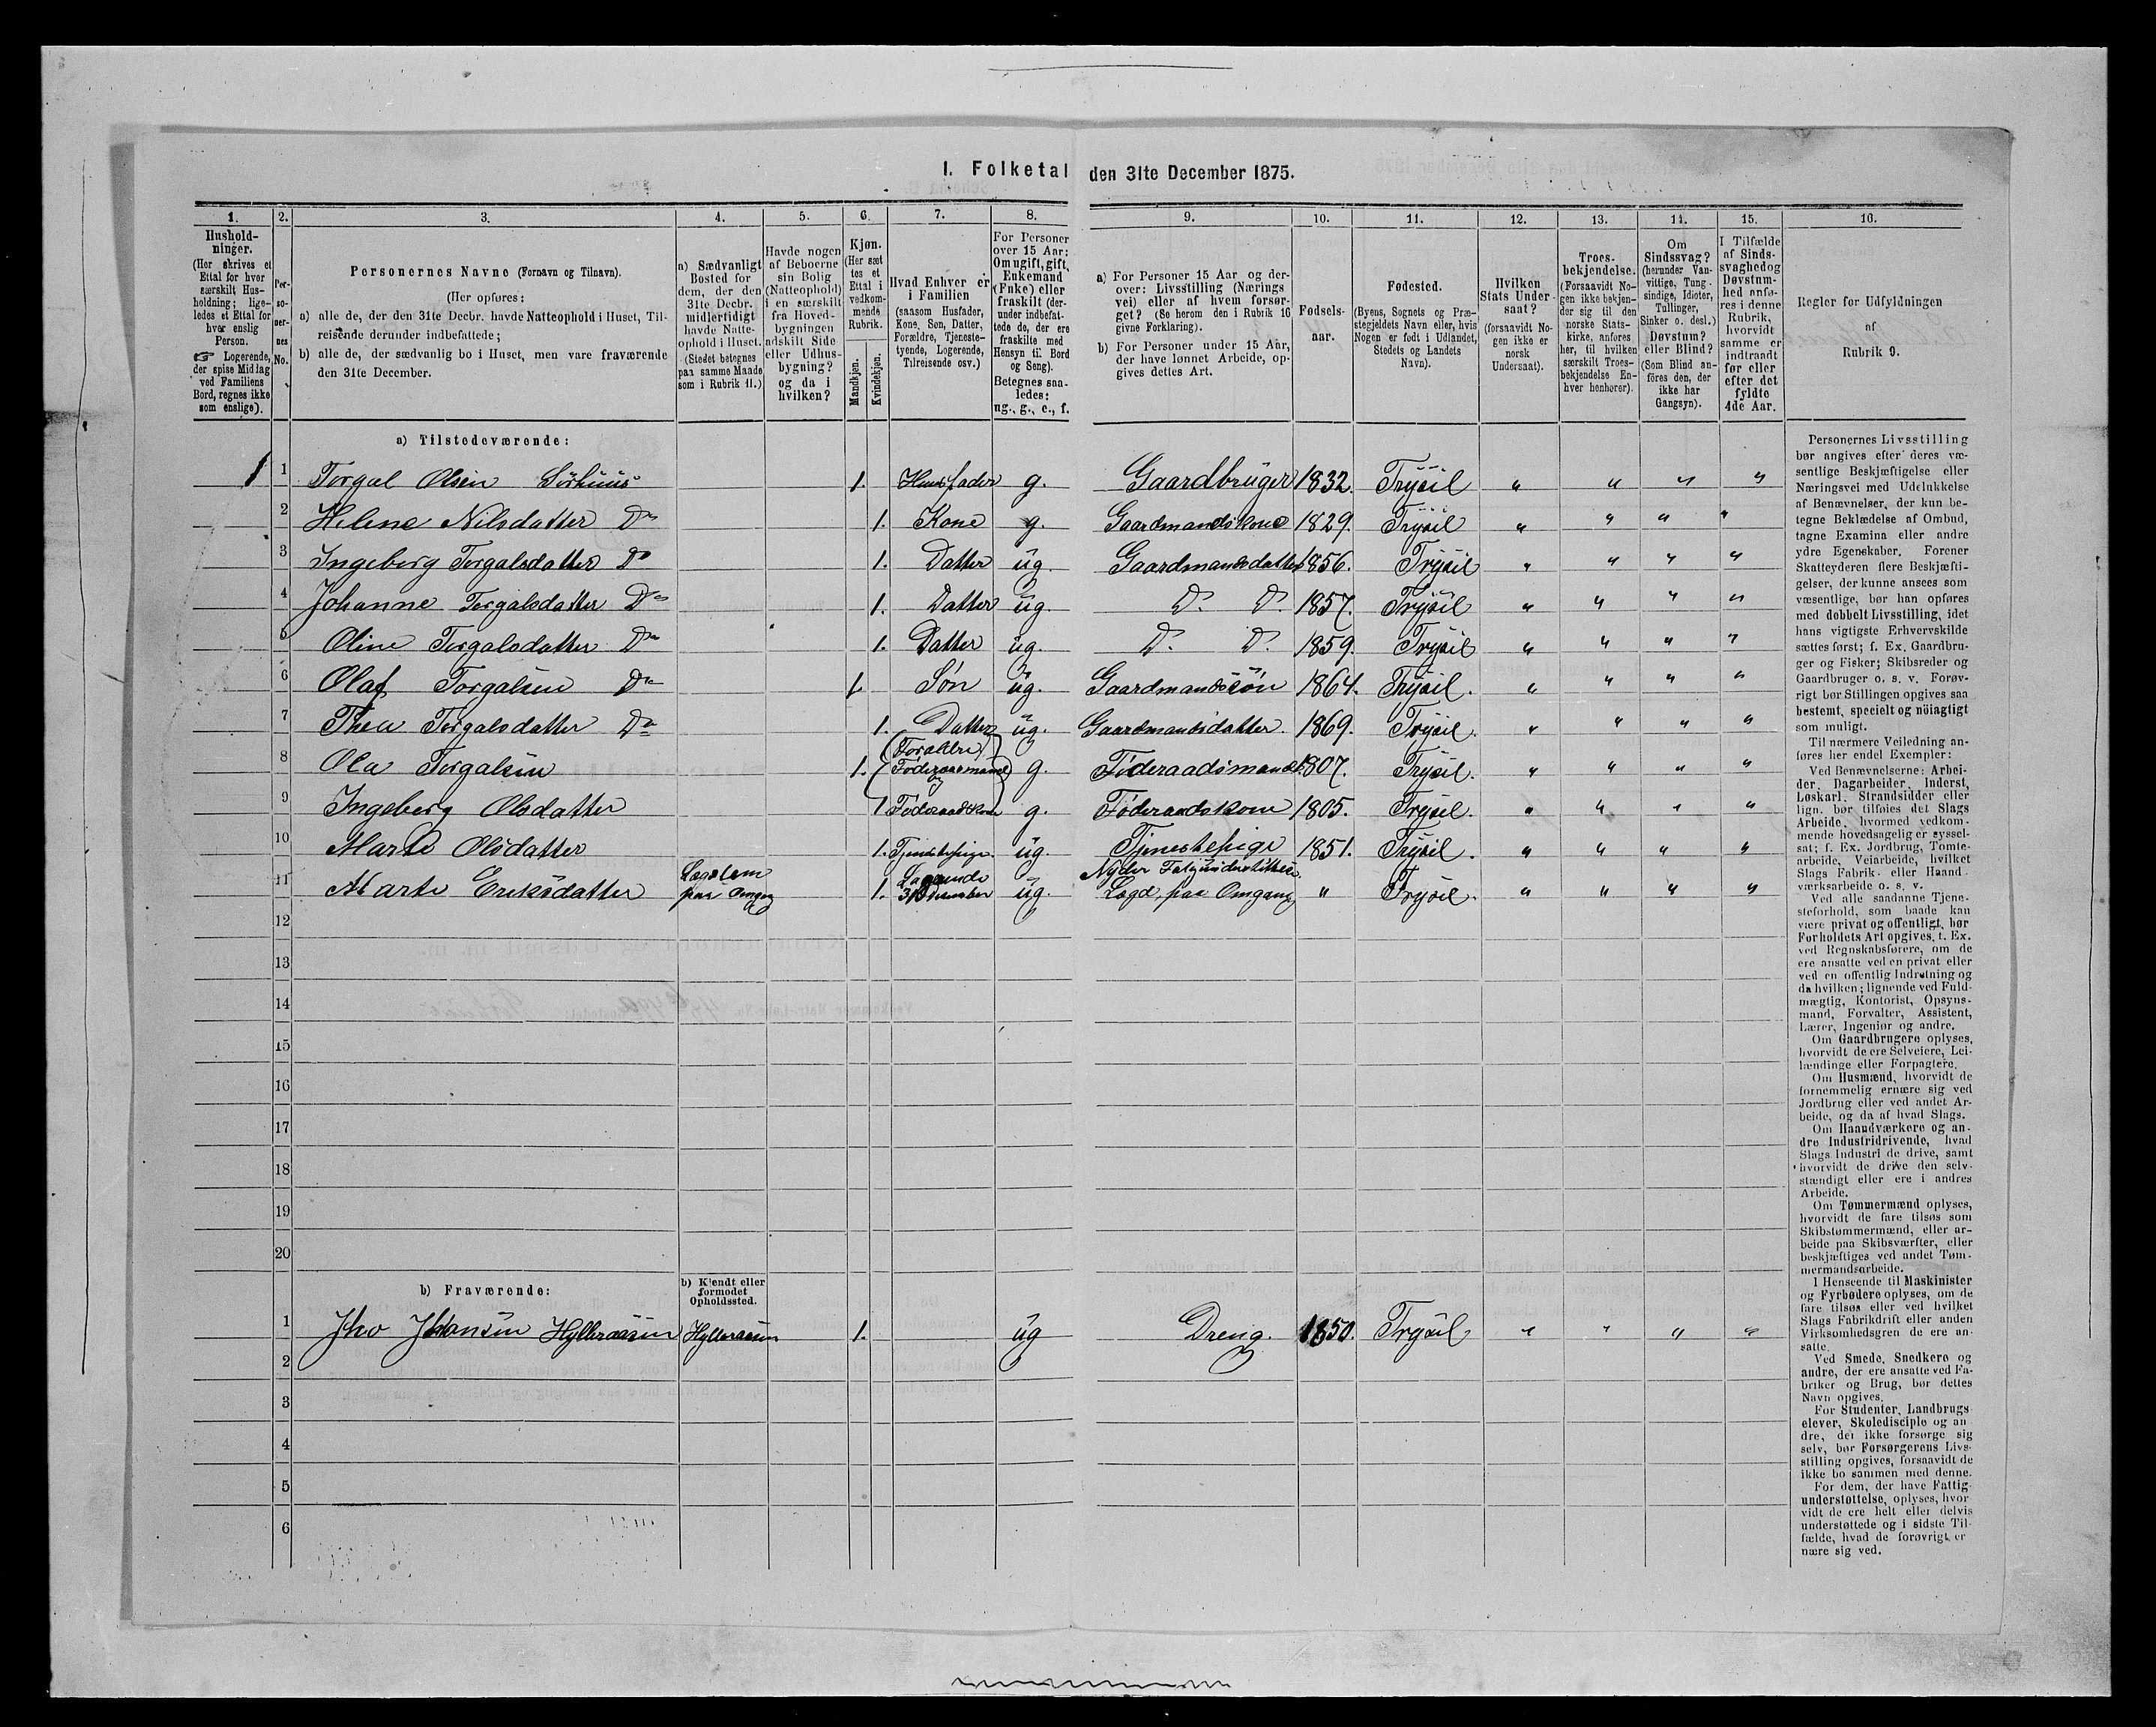 I. Folketal den 31te December 1875.
1. 2. 3. 4. 5. 6. 7. 8. 9. 10. 11. 12. 13. 14. 15. 16.
Hushold-
ninger.
(Her skrives et
Ettal for hver
særskilt Hus-
holdning; lige-
ledes et Ettal for
hver enslig
Person.
☞ Logerende,
der spise Middag
ved Familiens
Bord, regnes ikke
som enslige).
Per-
so-
ner-
nes
No.
Personernes Navne (Fornavn og Tilnavn).
(Her opføres:
a) alle de, der den 31te Decbr. havde Natteophold i Huset, Til-
reisende derunder indbefattede;
b) alle de, der sædvanlig bo i Huset, men vare fraværende
den 31te December.
a) Sædvanligt
Bosted for
dem, der den
31te Decbr.
midlertidigt
havde Natte-
ophold i Huset.
(Stedet betegnes
paa samme Maade
som i Rubrik 11.)
Havde nogen
af Beboerne
sin Bolig
(Natteophold)
i en særskilt
fra Hoved-
bygningen
adskilt Side
eller Udhus-
bygning?
og da i
hvilken?
Kjøn.
(Her sæt
tes et
Ettal i
vedkom-
mende
Rubrik.
Mandkjøn.
Kvindekjøn.
Hvad Enhver er
i Familien
(saasom Husfader,
Kone, Søn, Datter,
Forældre, Tjeneste-
tyende, Logerende,
Tilreisende osv.)
For Personer
over 15 Aar:
Om ugift, gift,
Enkemand
(Enke) eller
fraskilt (der-
under indbefat-
tede de, der ere
fraskilte med
Hensyn til Bord
og Seng).
Betegnes saa-
ledes:
ug., g., e., f.
a) For Personer 15 Aar og der-
over: Livsstilling (Nærings
vei) eller af hvem forsør-
get? (Se herom den i Rubrik 16
givne Forklaring).
b) For Personer under 15 Aar,
der have lønnet Arbeide, op-
gives dettes Art.
Fødsels-
aar.
Fødested.
(Byens, Sognets og Præ-
stegjeldets Navn eller, hvis
Nogen er født i Udlandet,
Stedets og Landets
Navn).
Hvilken
Stats Under-
saat?
(forsaavidt No-
gen ikke er
norsk
Undersaat).
Troes-
bekjendelse.
(Forsaavidt No-
gen ikke bekjen-
der sig til den
norske Stats-
kirke, anføres
her, til hvilken
særskilt Troes-
bekjendelse En-
hver henhører).
Om
Sindssvag?
(herunder Van-
vittige, Tung-
sindige, Idioter,
Tullinger,
Sinker o. desl.)
Døvstum?
eller Blind?
(Som Blind an-
føres den, der
ikke har
Gangsyn).
I Tilfælde
af Sinds-
svaghed og
Døvstum-
hed anfø-
res i denne
Rubrik,
hvorvidt
samme er
indtraadt
før eller
efter det
fyldte
4de Aar.
Regler for Udfyldningen
af
Rubrik 9.
a) Tilstedeværende:
1 1 Torgal Olsen Sörhuus 1. Husfader g. Gaardbruger 1832. Trysil " " " "
2 Helene Nilsdatter Do 1. Kone g. Gaardmandskone 1829. Trysil " " " "
3 Ingeborg Torgalsdatter Do 1. Datter ug. Gaardmandsdatter 1856. Trysil " " " "
4 Johanne Torgalsdatter Do 1. Datter ug. Do. Do. 1857. Trysil " " " "
5 Oline Torgalsdatter Do 1. Datter ug. Do. Do. 1859. Trysil " " " "
6 Olaf Torgalsen Do 1. Søn ug. Gaardmandssön 1864. Trysil. " " " "
7 Thea Torgalsdatter Do 1. Datter ug. Gaardmandsdatter. 1869. Trysil. " " " "
8 Ola Torgalsen 1. (Forældre) Föderaadsmand og g. Föderaadsmand 1807. Trysil. " " " "
9 Ingeborg Olsdatter 1 Föderaadskone g. Föderaadskone 1805. Trysil. " " " "
10 Marte Olsdatter 1. Tjenestepige. ug. Tjenestepige 1851. Trysil. " " " "
11 Marte Eriksdatter Lægdlem paa Omgang 1. 31 December ug. Nyder Fattigunderstöttelse. Lægd paa Omgang " Trysil. " " " "
12
13
14
15
16
17
18
19
20
b) Fraværende:
b) Kjendt eller
formodet
Opholdssted.
1 Jho Johansen Hylleraasen Hylleraasen 1. ug Dreng. 1850. Trysil " " " "
2
3
4
5
6
Personernes Livsstilling
bør angives efter deres væ-
sentlige Beskjæftigelse eller
Næringsvei med Udelukkelse
af Benævnelser, der kun be-
tegne Beklædelse af Ombud,
tagne Examina eller andre
ydre Egenskaber. Forener
Skatteyderen flere Beskjæfti-
gelser, der kunne ansees som
væsentlige, bør han opføres
med dobbelt Livsstilling, idet
hans vigtigste Erhvervskilde
sættes først; f. Ex. Gaardbru-
ger og Fisker; Skibsreder og
Gaardbruger o. s. v. Forøv-
rigt bør Stillingen opgives saa
bestemt, specielt og nöiagtigt
som muligt.
Til nærmere Veiledning an-
føres her endel Exempler:
Ved Benævnelserne: Arbei-
der, Dagarbeider, Inderst,
Løskarl, Strandsidder eller
lign. bør tilføies det Slags
Arbeide, hvormed vedkom-
mende hovedsagelig er syssel-
sat; f. Ex. Jordbrug, Tomte-
arbeide, Veiarbeide, hvilket
Slags Fabrik- eller Haand
værksarbeide o. s. v.
Ved alle saadanne Tjene-
steforhold, som baade kan
være privat og offentligt, bør
Forholdets Art opgives, t. Ex.
ved Regnskabsførere, om de
ere ansatte ved en privat eller
ved en offentlig Indretning og
da hvilken; lignende ved Fuld-
mægtig, Kontorist, Opsyns-
mand, Forvalter, Assistent,
Lærer, Ingeniør og andre.
Om Gaardbrugere oplyses,
hvorvidt de ere Selveiere, Lei-
lændinge eller Forpagtere.
Om Husmænd, hvorvidt de
fornemmelig ernære sig ved
Jordbrug eller ved andet Ar-
beide, og da af hvad Slags.
Om Haandværkere og an-
dre Industridrivende, hvad
Slags Industri de drive, samt
hvorvidt de drive den selv-
stændigt eller ere i andres
Arbeide.
Om Tømmermænd oplyses,
hvorvidt de fare tilsøs som
Skibstømmermænd, eller ar-
beide paa Skibsværfter, eller
beskjæftiges ved andet Tøm-
mermandsarbeide.
I Henseende til Maskinister
og Fyrbødere oplyses, om de
fare tilsøs eller ved hvilket
Slags Fabrikdrift eller anden
Virksomhedsgren de ere an-
satte.
Ved Smede, Snedkere og
andre, der ere ansatte ved Fa-
briker og Brug, bør dettes
Navn opgives.
For Studenter, Landbrugs
elever, Skoledisciple og an
dre, der ikke forsørge sig
selv, bør Forsørgerens Livs-
stilling opgives, forsaavidt de
ikke bo sammen med denne.
For dem, der have Fattig-
understøttelse, oplyses, hvor-
vidt de ere helt eller delvis
understøttede og i sidste Til-
fælde, hvad de forøvrigt er
nære sig ved.